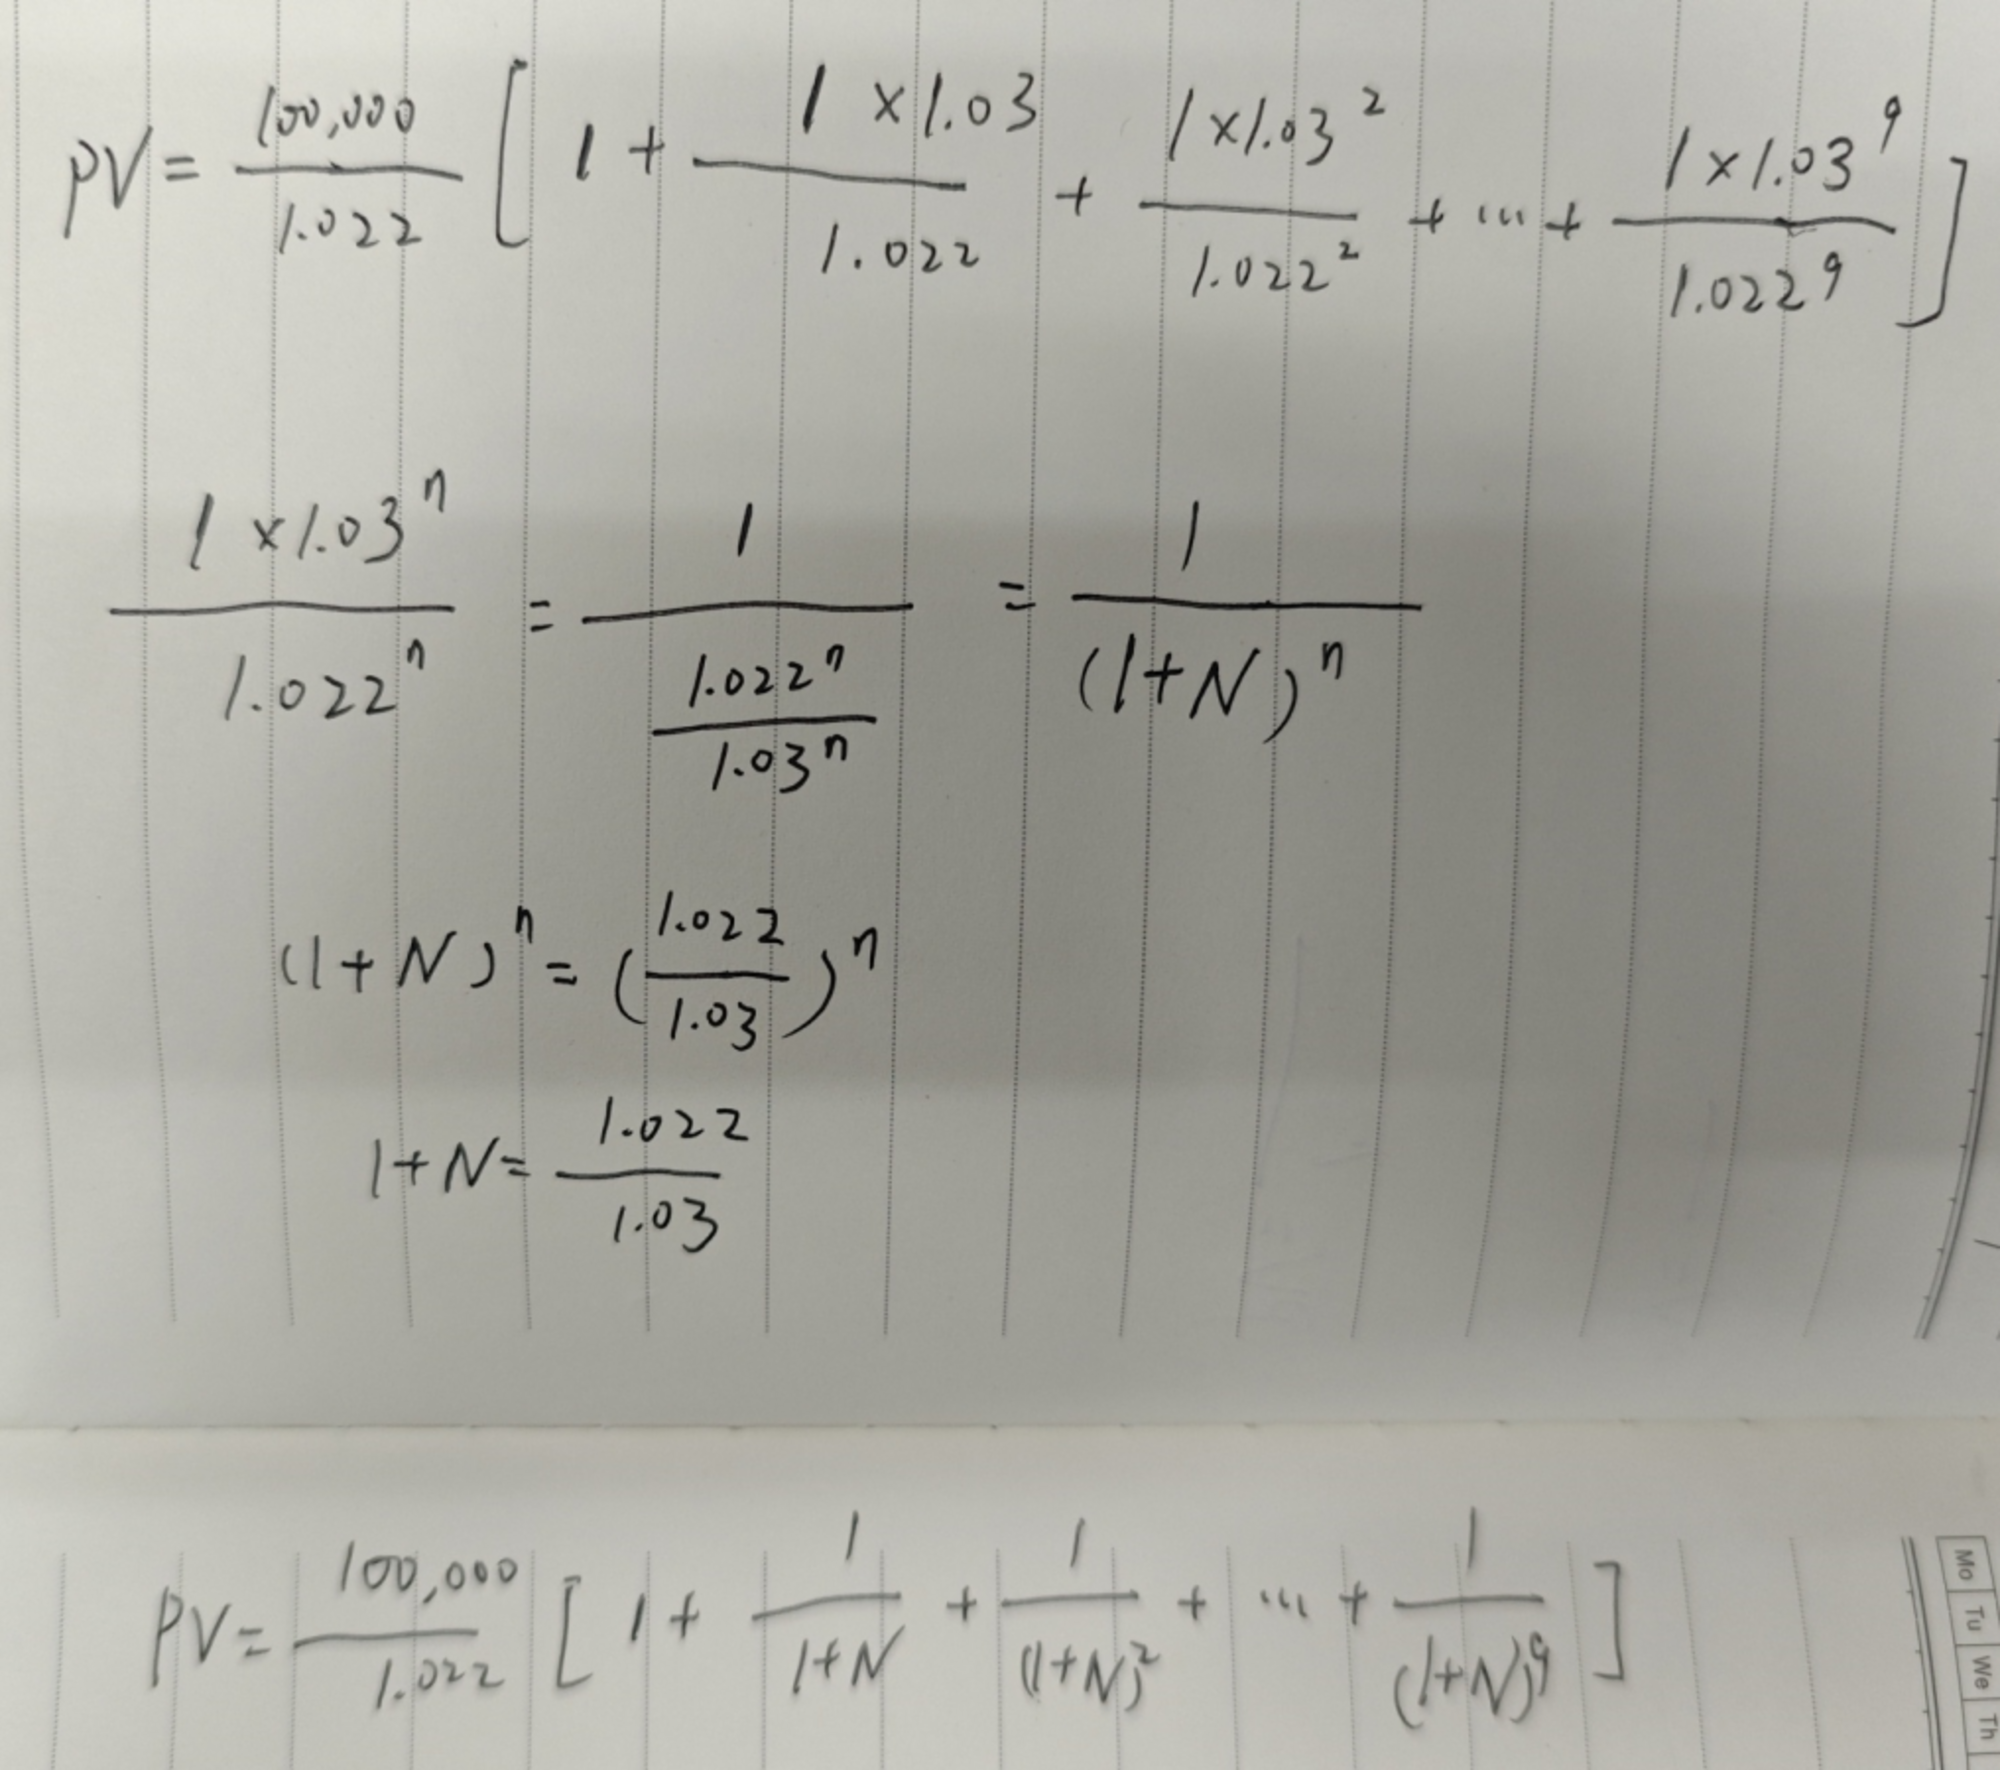 PV = 100,000/1.022 [ 1 + 1 × 1.03/1.022 + 1 × 1.03²/1.022² + ... + 1 × 1.03⁹/1.022⁹ ]
1 × 1.03ⁿ/1.022ⁿ = 1/(1.022ⁿ/1.03ⁿ) = 1/(1+N)ⁿ
(1+N)ⁿ = (1.022/1.03)ⁿ
1+N = 1.022/1.03
PV = 100,000/1.022 [ 1 + 1/1+N + 1/(1+N)² + ... + 1/(1+N)⁹ ]
Mo
Tu
We
Th